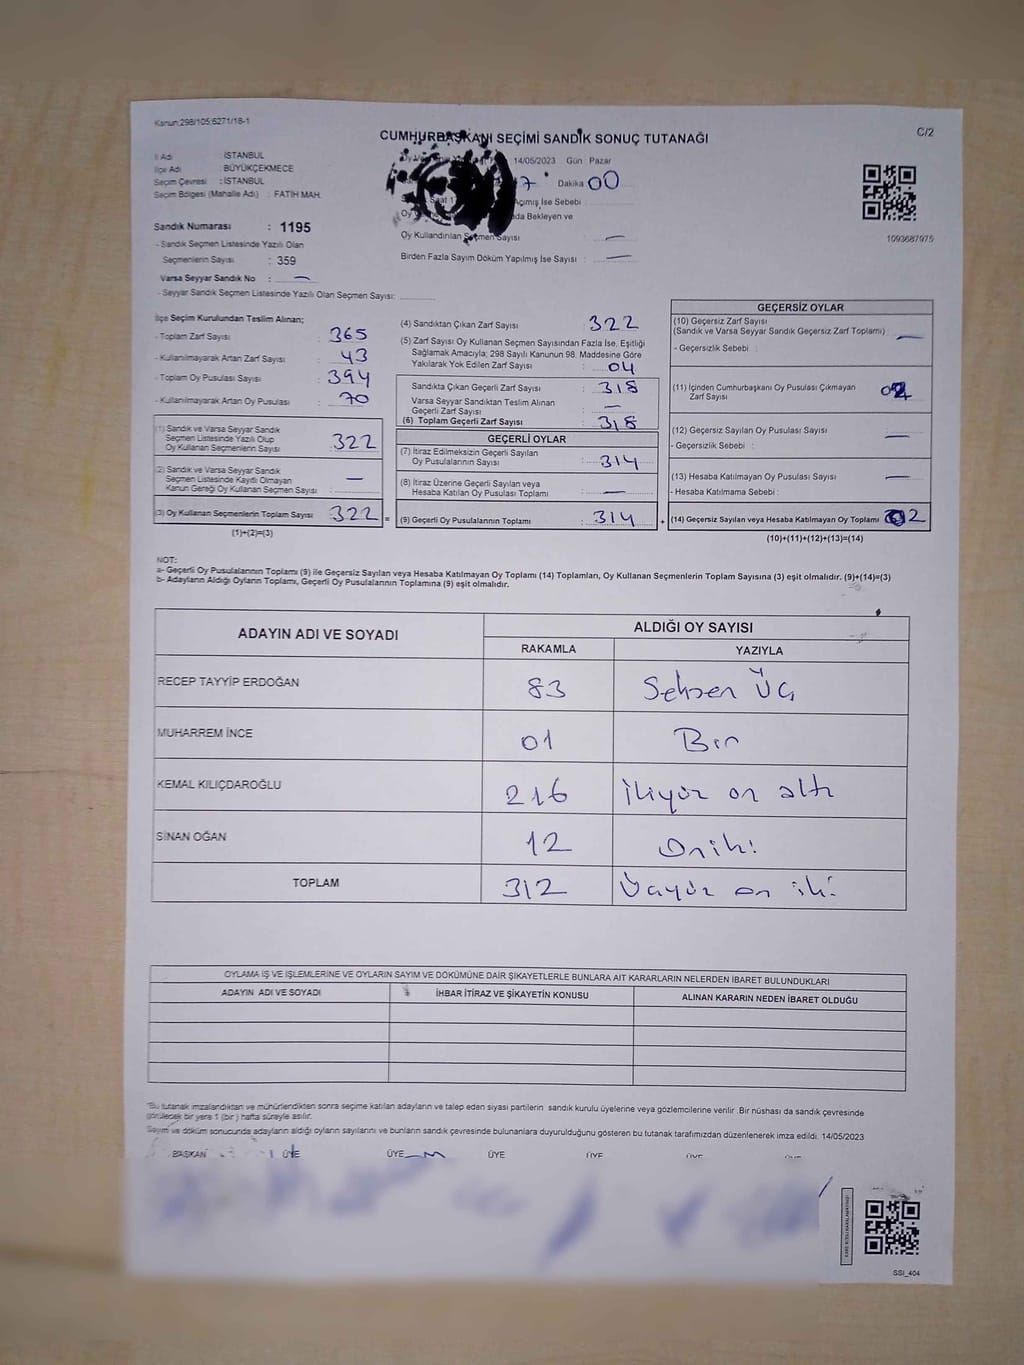 Kanun:298/105:6271/18-1
CUMHURBAŞKANI SEÇİMİ SANDIK SONUÇ TUTANAĞI
C/2
İl Adı : İSTANBUL
İlçe Adı : BÜYÜKÇEKMECE
Seçim Çevresi : İSTANBUL
Seçim Bölgesi (Mahalle Adı) : FATİH MAH.
14/05/2023 Gün Pazar
7 Dakika 00
Açımış İse Sebebi
da Bekleyen ve
Oy Kullandırılan Seçmen Sayısı —
Birden Fazla Sayım Döküm Yapılmış İse Sayısı : —
1093687975
Sandık Numarası : 1195
- Sandık Seçmen Listesinde Yazılı Olan
Seçmenlerin Sayısı : 359
Varsa Seyyar Sandık No : —
- Seyyar Sandık Seçmen Listesinde Yazılı Olan Seçmen Sayısı:
İlçe Seçim Kurulundan Teslim Alınan;
- Toplam Zarf Sayısı : 365
- Kullanılmayarak Artan Zarf Sayısı : 43
- Toplam Oy Pusulası Sayısı : 394
- Kullanılmayarak Artan Oy Pusulası : 70
(1) Sandık ve Varsa Seyyar Sandık
Seçmen Listesinde Yazılı Olup
Oy Kullanan Seçmenlerin Sayısı : 322
(2) Sandık ve Varsa Seyyar Sandık
Seçmen Listesinde Kayıtlı Olmayan
Kanun Gereği Oy Kullanan Seçmen Sayısı : —
(3) Oy Kullanan Seçmenlerin Toplam Sayısı : 322 =
(1)+(2)=(3)
(4) Sandıktan Çıkan Zarf Sayısı : 322
(5) Zarf Sayısı Oy Kullanan Seçmen Sayısından Fazla İse, Eşitliği
Sağlamak Amacıyla; 298 Sayılı Kanunun 98. Maddesine Göre
Yakılarak Yok Edilen Zarf Sayısı : 04
Sandıkta Çıkan Geçerli Zarf Sayısı : 318
Varsa Seyyar Sandıktan Teslim Alınan
Geçerli Zarf Sayısı : —
(6) Toplam Geçerli Zarf Sayısı : 318
GEÇERLİ OYLAR
(7) İtiraz Edilmeksizin Geçerli Sayılan
Oy Pusulalarının Sayısı : 314
(8) İtiraz Üzerine Geçerli Sayılan veya
Hesaba Katılan Oy Pusulası Toplamı : —
(9) Geçerli Oy Pusulalarının Toplamı : 314 +
GEÇERSİZ OYLAR
(10) Geçersiz Zarf Sayısı
(Sandık ve Varsa Seyyar Sandık Geçersiz Zarf Toplamı) : —
- Geçersizlik Sebebi :
(11) İçinden Cumhurbaşkanı Oy Pusulası Çıkmayan
Zarf Sayısı
(12) Geçersiz Sayılan Oy Pusulası Sayısı : —
- Geçersizlik Sebebi :
(13) Hesaba Katılmayan Oy Pusulası Sayısı : —
- Hesaba Katılmama Sebebi :
(14) Geçersiz Sayılan veya Hesaba Katılmayan Oy Toplamı : 2
(10)+(11)+(12)+(13)=(14)
NOT:
a- Geçerli Oy Pusulalarının Toplamı (9) ile Geçersiz Sayılan veya Hesaba Katılmayan Oy Toplamı (14) Toplamları, Oy Kullanan Seçmenlerin Toplam Sayısına (3) eşit olmalıdır. (9)+(14)=(3)
b- Adayların Aldığı Oyların Toplamı, Geçerli Oy Pusulalarının Toplamına (9) eşit olmalıdır.
ADAYIN ADI VE SOYADI ALDIĞI OY SAYISI
RAKAMLA YAZIYLA
RECEP TAYYİP ERDOĞAN 83 Seksen Üç
MUHARREM İNCE 01 Bir
KEMAL KILIÇDAROĞLU 216 İkiyüz on altı
SİNAN OĞAN 12 Oniki
TOPLAM 312 Üçyüz on iki
OYLAMA İŞ VE İŞLEMLERİNE VE OYLARIN SAYIM VE DÖKÜMÜNE DAİR ŞİKAYETLERLE BUNLARA AİT KARARLARIN NELERDEN İBARET BULUNDUKLARI
ADAYIN ADI VE SOYADI İHBAR İTİRAZ VE ŞİKAYETİN KONUSU ALINAN KARARIN NEDEN İBARET OLDUĞU
"Bu tutanak imzalandıktan ve mühürlendikten sonra seçime katılan adayların ve talep eden siyasi partilerin sandık kurulu üyelerine veya gözlemcilerine verilir. Bir nüshası da sandık çevresinde
görülecek bir yere 1 (bir) hafta süreyle asılır.
Sayım ve döküm sonucunda adayların aldığı oyların sayılarını ve bunların sandık çevresinde bulunanlara duyurulduğunu gösteren bu tutanak tarafımızdan düzenlenerek imza edildi. 14/05/2023
BAŞKAN ÜYE ÜYE ÜYE ÜYE
SSI_404